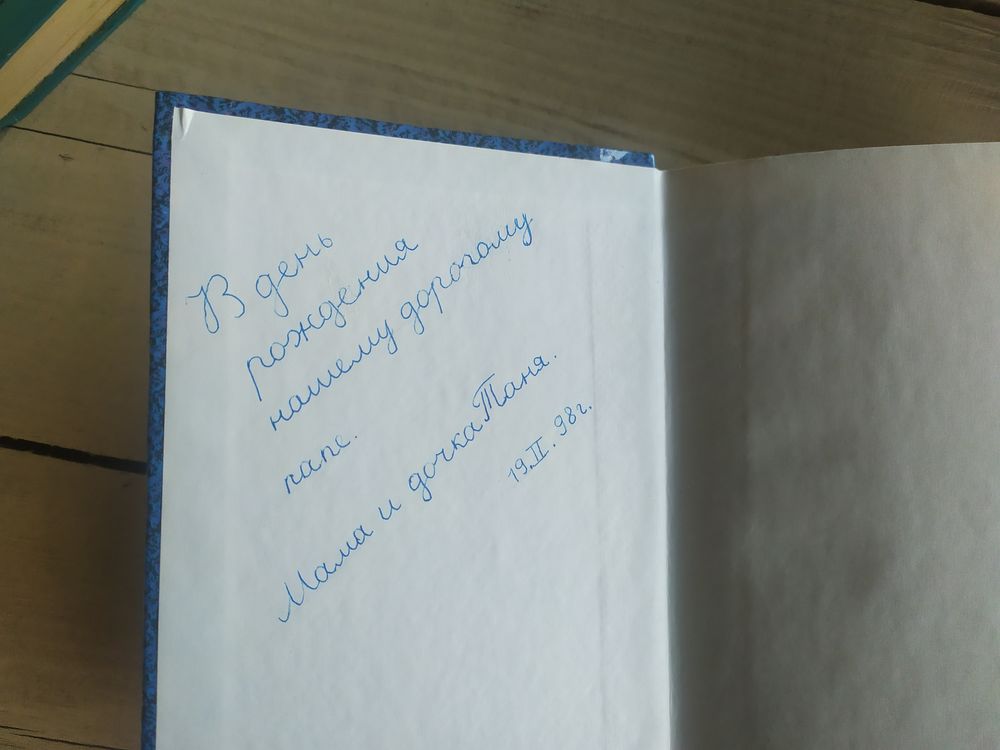 В день
рождения
нашему дорогому
папе.
Мама и дочка Таня.
19.II.98г.